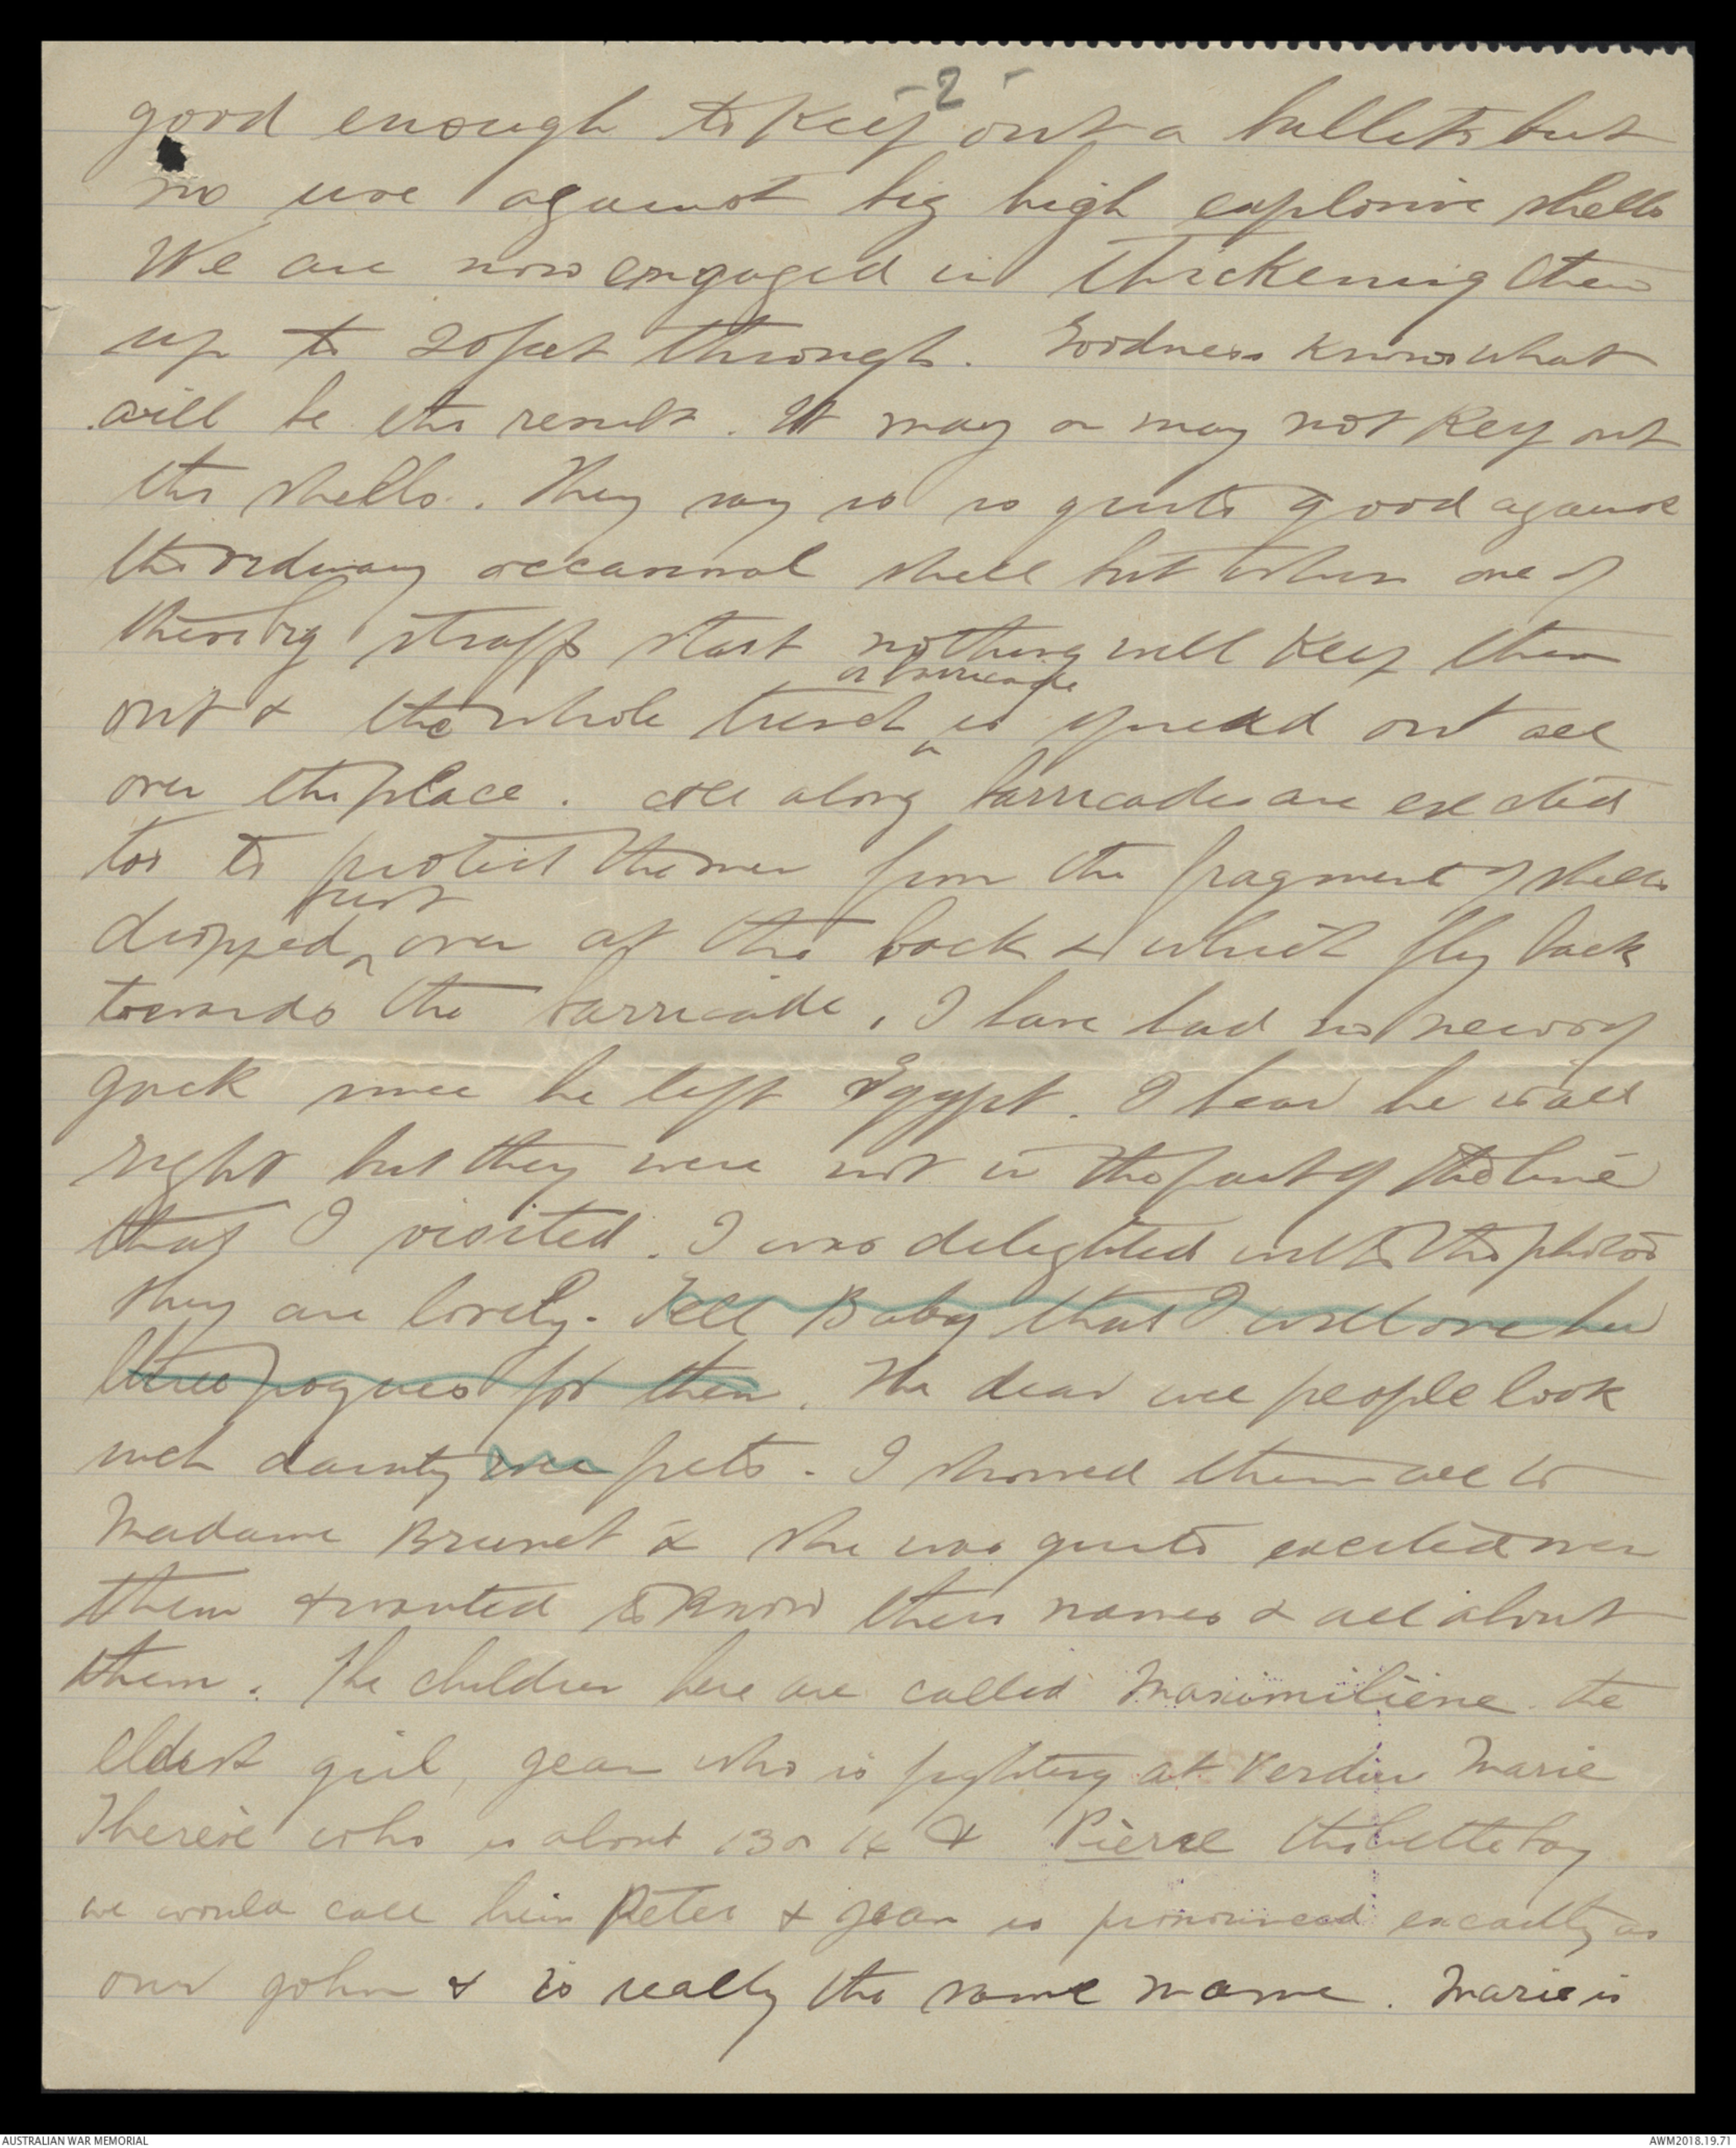 -2-
good enough to keep out a bullets but
no use against big high explosive shells
We are now engaged in thickening them
up to 20 feet through. Goodness knows what
will be the result. It may or may not keep out
the shells. They say it is quite good against
the ordinary occasional shell but when one of
these big straffs start nothing will keep them
or barricade
out & the whole trench is spread out all
over the place. All along barricades are erected
too to protect the men from the fragments of shells
just
dropped over at the back & which fly back
towards the barricade. I have had no news of
Jack since he left Egypt. I hear he is all
right but they were not in the part of the line
that I visited. I was delighted with the photos
they are lovely. Tell Baby that I will owe her
three pogues for them. The dear wee people look
such dainty wee pets. I showed them all to
Madame Brunet & she was quite excited over
them & wanted to know their names & all about
them. The children here are called Maximiliene the
eldest girl, Jean who is fighting at Verdun Marie
Therese who is about 13 or 14 & Pierre the little boy
we would call him Peter & Jean is pronounced exactly as
our John & is really the same name. Marie is
AUSTRALIAN WAR MEMORIAL
AWM2018.19.71